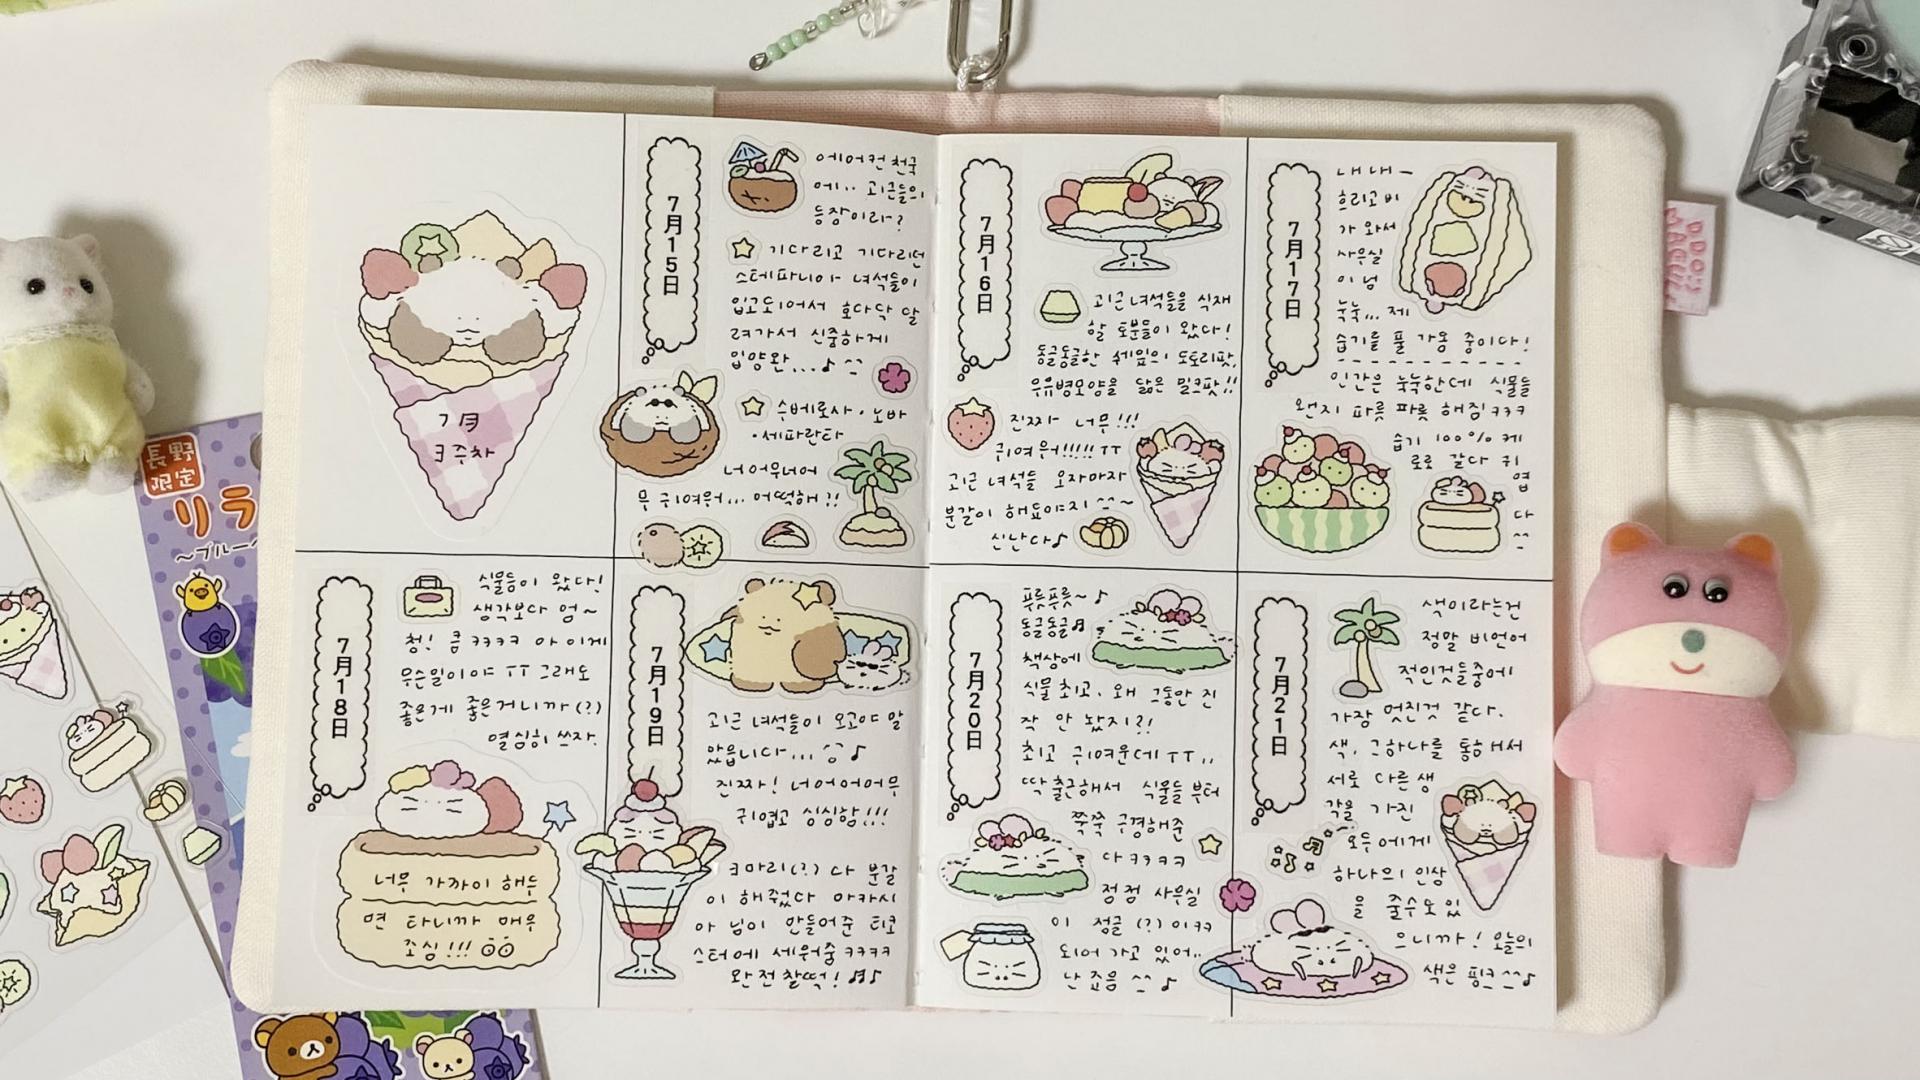 7月
3주차
7月15日
에어컨 천국
에.. 괴근들의
등장이라?
기다리고 기다리던
스테파니아 녀석들이
입고되어서 호다닥 달
려가서 신중하게
입양완...♪ ^^
수베로사·노바
·세파란타
너어무너어
무 귀여워... 어떡해?!
7月16日
괴근 녀석들을 식재
할 토분들이 왔다!
동글동글한 쉐입의 도토리팟,
우유병모양을 닮은 밀크팟!!
진짜 너무!!!
귀여워!!!!! TT
괴근 녀석들 오자마자
분갈이 해줘야지 ^^~
신난다♪
7月17日
내내~
흐리고 비
가 와서
사무실
이 넘
눅눅... 제
습기를 풀 가동 중이다!
인간은 눅눅한데 식물들
왠지 파릇 파릇 해짐 ㅋㅋㅋ
습기 100% 케
로로 같다 귀
엽
다
^^
7月18日
식물등이 왔다!
생각보다 엄~
청! 큼 ㅋㅋㅋㅋ 아 이게
무슨일이야 TT 그래도
좋은게 좋은거니까(?)
열심히 쓰자.
너무 가까이 해두
면 타니까 매우
조심!!!
7月19日
괴근 녀석들이 오고야 말
았습니다...^^♪
진짜! 너어어어어무
귀엽고 싱싱함!!!
3마리(?) 다 분갈
이 해줬다 아카시
아 님이 만들어준 티코
스터에 세워줌 ㅋㅋㅋㅋ
완전찰떡!♬♪
7月20日
푸릇푸릇~♪
동글동글♬
책상에
식물 최고. 왜 그동안 진
작 안 놨지?!
최고 귀여운데 TT..
딱 출근해서 식물들 부터
쭉쭉 구경해준
다 ㅋㅋㅋㅋ
점점 사무실
이 정글(?)이 ㅋㅋ
되어 가고 있어..
난 좋음 ^^♪
7月21日
색이라는건
정말 비언어
적인것들중에
가장 멋진것 같다.
색, 그하나를 통해서
서로 다른 생
각을 가진
모두에게
하나의 인상
을 줄수도 있
으니까! 오늘의
색은 핑크^^♪
長野
限定
リラ